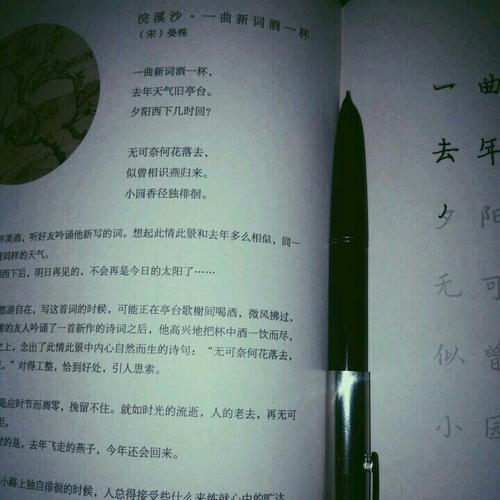 浣溪沙·一曲新词酒一杯
（宋）晏殊
一曲新词酒一杯，
去年天气旧亭台。
夕阳西下几时回？
无可奈何花落去，
似曾相识燕归来。
小园香径独徘徊。
美酒，听好友吟诵他新写的词。想起此情此景和去年多么相似，同一
同样的天气。
西下后，明日再见的，不会再是今日的太阳了……
悠游自在，写这首词的时候，可能正在亭台歌榭间喝酒，微风拂过，
的友人吟诵了一首新作的诗词之后，他高兴地把杯中酒一饮而尽，
之上，念出了此情此景中内心自然而生的诗句：“无可奈何花落去，
。”对得工整，恰到好处，引人思索。
是应时节而凋零，挽留不住。就如时光的流逝，人的老去，再无可
的是，去年飞走的燕子，今年还会回来。
小路上独自徘徊的时候，人总得接受些什么来练就心中的旷达
一 曲
去 年
夕 阳
无 可
似 曾
小 园